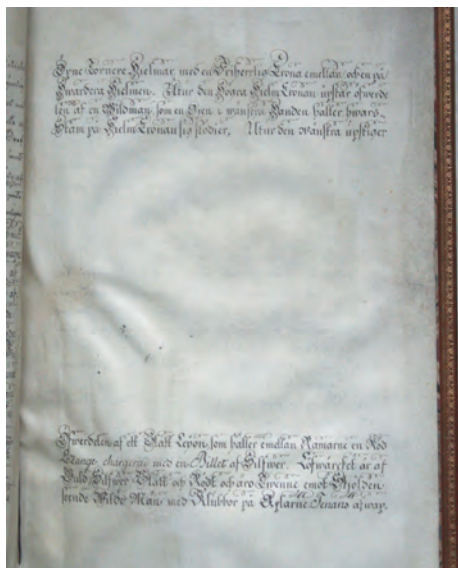 Öpne Tornere Hielmar, med en Friherrlig Crona emellan och en på
hwardera Hielmen. Utur den Högra Hielm Cronan upstår öfwerde
len af en Wildman, som en Gren i wänstra Handen håller, hwars
Stam på Hielm Cronan sig stöder. Utur den wänstra upstiger
Öfwerdelen af ett Blått Leyon, som håller emellan Ramarne en Röd
Stange chargerat med en Billet af Silfwer. Löfwärcket är af
Guld Silfwer Blått och Rödt och äro twenne emot Skiölden
seende Wilde Män med Klubbor på Axlarne Tenans